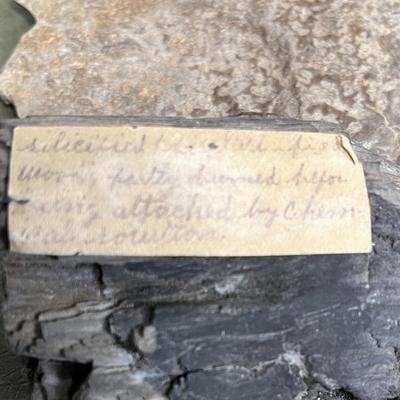 silicified
Wood", partly burned befor
being attached by Chem-
ical solution.